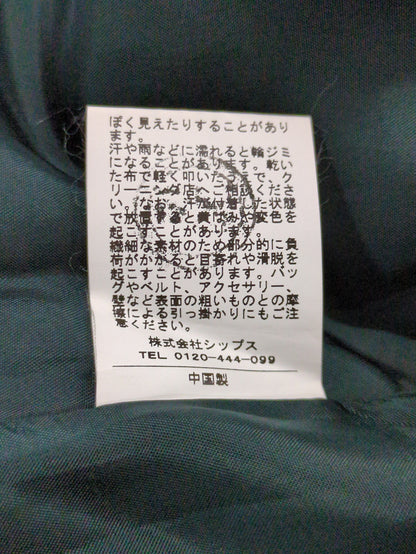 ぽく見えたりすることがあり
ます。
汗や雨などに濡れると輪ジミ
になることがあります。乾い
た布で軽く叩いたうえで、ク
リーニング店へご相談くださ
い。なお、汗が付着した状態
で放置すると黄ばみや変色を
起こすことがあります。
繊細な素材のため部分的に負
荷がかかると目寄れや滑脱を
起こすことがあります。バッ
グやベルト、アクセサリー、
壁など表面の粗いものとの摩
擦による引っ掛かりにもご注
意ください。
株式会社シップス
TEL 0120-444-099
中国製